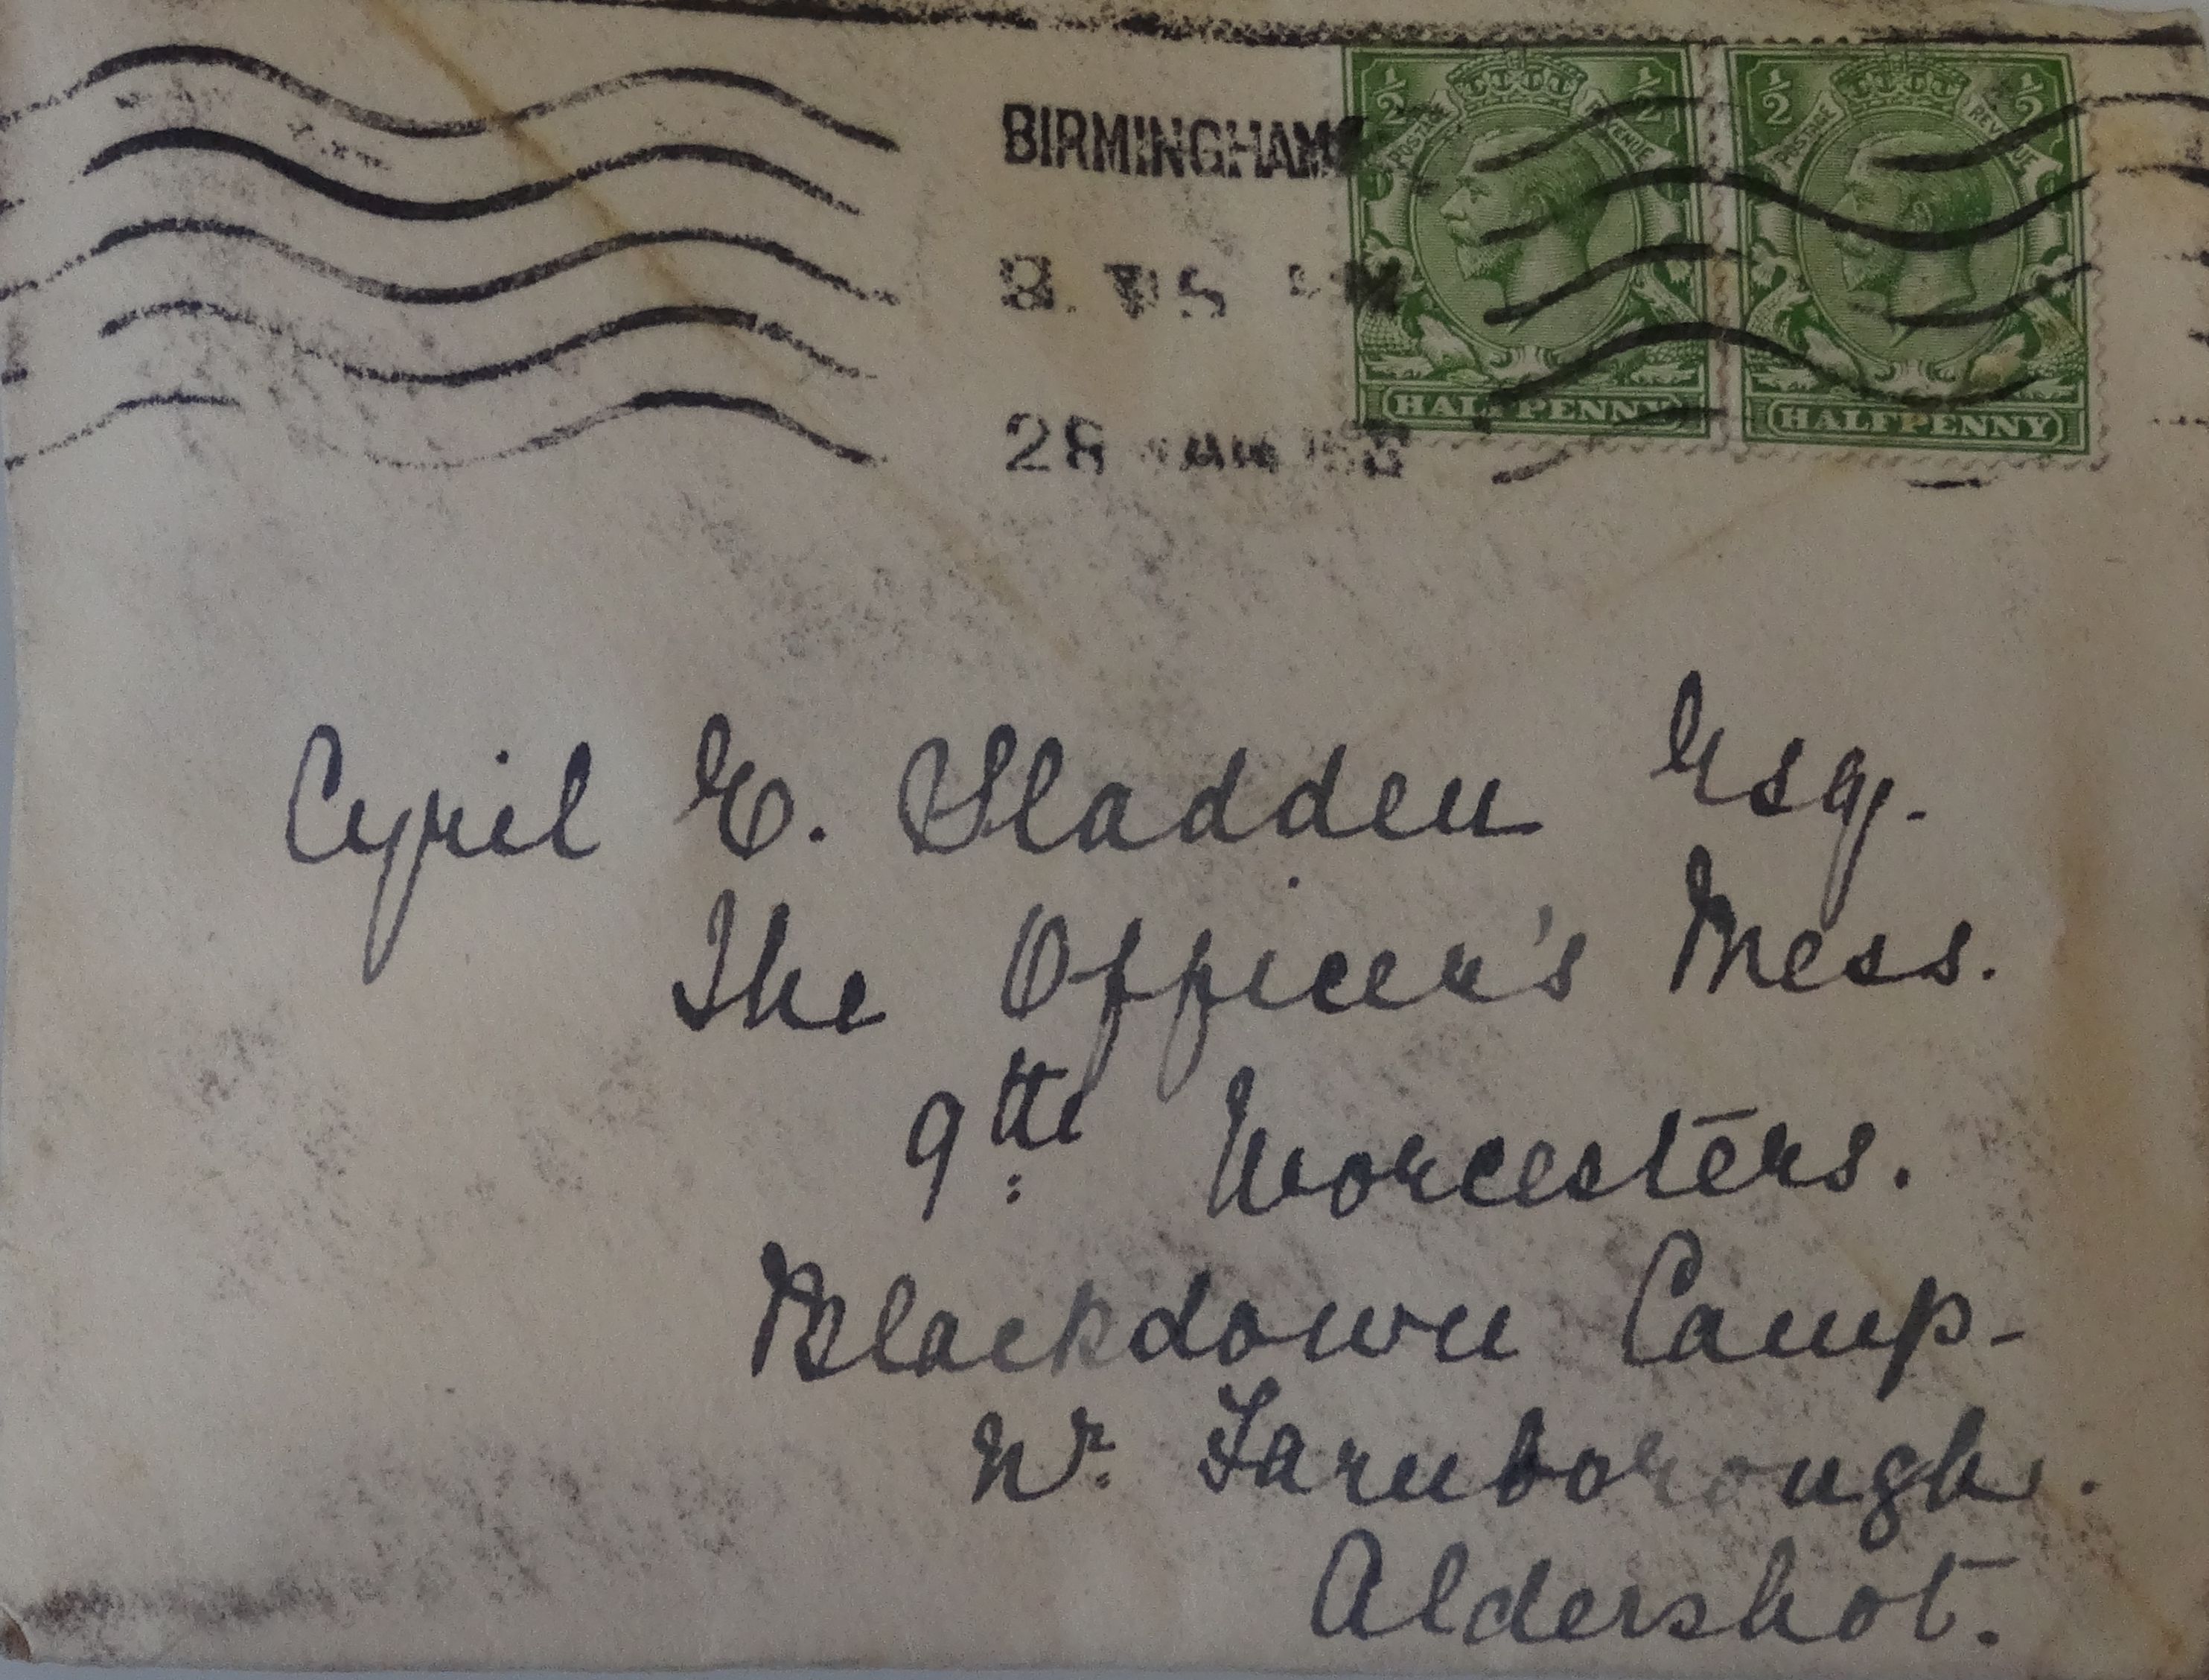 BIRMINGHAM
28
½ POSTAGE REVENUE ½
HALFPENNY
½ POSTAGE REVENUE ½
HALFPENNY
Cyril E. Sladden Esq.
The Officer's Mess.
9th Worcesters.
Blackdown Camp-
Nr. Farnborough.
Aldershot.